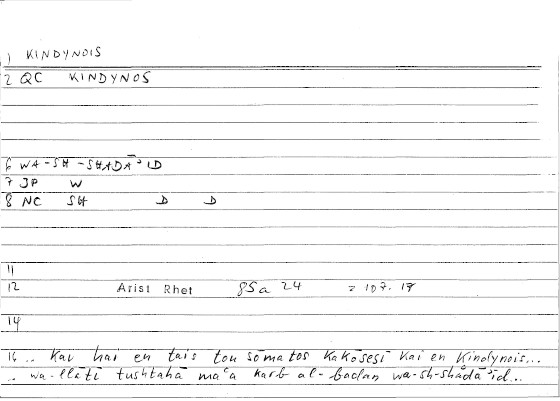 1 KINDYNOIS
2 QC KINDYNOS
6 WA-SH-SHADĀʾID
7 JP W
8 NC SH D D
11
12 Arist Rhet 85a 24 = 107.17
14
16 .. kai hai en tais tou sōmatos kakōsesi kai en kindynois...
.. wa-llātī tushtahā maʿa karb al-badan wa-sh-shadāʾid...